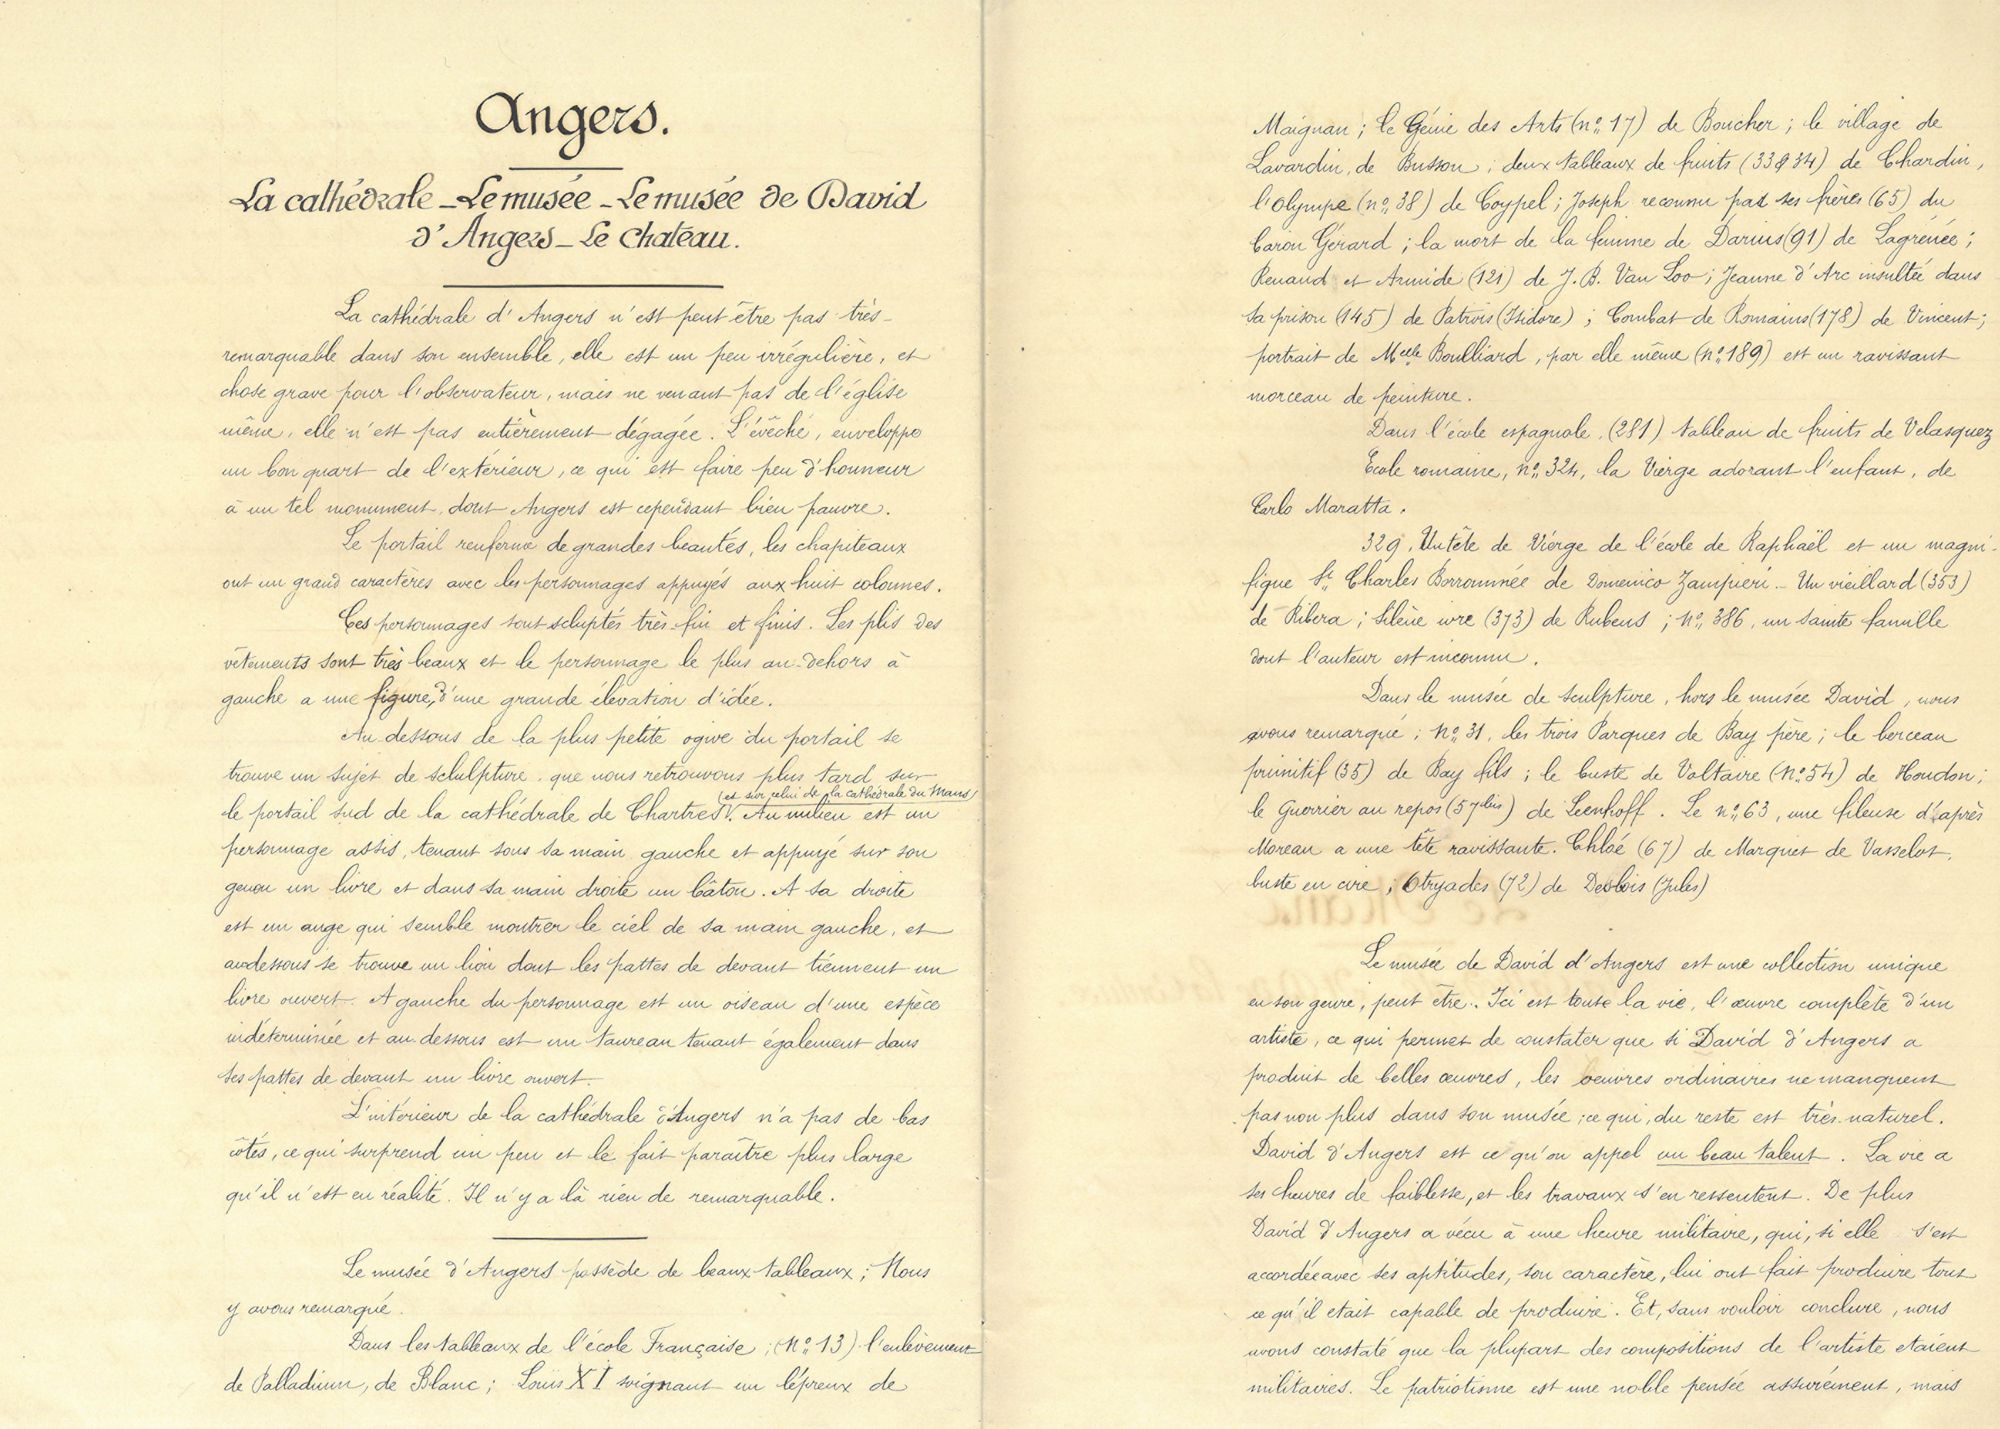 Angers.
La cathédrale - Le musée - Le musée de David
d'Angers - Le Chateau.
La cathédrale d'Angers n'est peut être pas très-
remarquable dans son ensemble, elle est un peu irrégulière, et
chose grave pour l'observateur, mais ne venant pas de l'église
même, elle n'est pas entièrement dégagée. L'évêché, enveloppe
un bon quart de l'extérieur, ce qui est faire peu d'honneur
à un tel monument, dont Angers est cependant bien pauvre.
Le portail renferme de grandes beautés, les chapiteaux
ont un grand caractères avec les personnages appuyés aux huit colonnes.
Ces personnages sont sculptés très-fin et finis. Les plis des
vêtements sont très beaux et le personnage le plus au-dehors à
gauche a une figure, d'une grande élévation d'idée.
Au dessous de la plus petite ogive du portail se
trouve un sujet de sclulpture que nous retrouvons plus tard sur
(et sur celui de la cathédrale du Mans)
le portail sud de la cathédrale de Chartres. Au milieu est un
personnage assis, tenant sous sa main gauche et appuyé sur son
genou un livre et dans sa main droite un bâton. A sa droite
est un ange qui semble montrer le ciel de sa main gauche, et
audessous se trouve un lion dont les pattes de devant tiennent un
livre ouvert. A gauche du personnage est un oiseau d'une espèce
indéterminée et au dessous est un taureau tenant également dans
ses pattes de devant un livre ouvert.
L'intérieur de la cathédrale d'Angers n'a pas de bas
côtés, ce qui surprend un peu et le fait paraître plus large
qu'il n'est en réalité. Il n'y a là rien de remarquable.
Le musée d'Angers possède de beaux tableaux; Nous
y avons remarqué.
Dans les tableaux de l'école Française; (No 13) l'enlèvement
de Palladium, de Blanc; Louis XI soignant un lépreux de
Maignan; le Génie des Arts (no 17) de Boucher; le village de
Lavardin, de Busson; deux tableaux de fruits (33 & 34) de Chardin,
l'Olympe (no 38) de Coypel; Joseph reconnu par ses frères (65) du
Baron Gérard; la mort de la femme de Darius (91) de Lagrenée;
Renaud et Armide (121) de J. B. Van Loo; Jeanne d'Arc insultée dans
sa prison (145) de Patrois (Isidore); Combat de Romains (178) de Vincent;
portrait de Melle Boulliard, par elle même (no 189) est un ravissant
morceau de peinture.
Dans l'école espagnole, (281) tableau de fruits de Velasquez
Ecole romaine, no 324, la Vierge adorant l'enfant, de
Carlo Maratta.
329, Un tête de Vierge de l'école de Raphaël et un magni-
fique St Charles Borromnée de Domenico Zampieri - Un vieillard (353)
de Ribera; Silène ivre (373) de Rubens; no 386, un sainte famille
dont l'auteur est inconnu.
Dans le musée de sculpture, hors le musée David, nous
avons remarqué; no 31, les trois Parques de Bay père; le berceau
primitif (35) de Bay fils; le buste de Voltaire (no 54) de Houdon;
le Guerrier au repos (57 bis) de Leenhoff. Le no 63, une fileuse d'après
Moreau a une tête ravissante. Chloé (67) de Marquet de Vasselot,
buste en cire; Otryades (72) de Desbois (Jules)
Le musée de David d'Angers est une collection unique
en son genre, peut être. Ici est toute la vie, l'œuvre complète d'un
artiste, ce qui permet de constater que si David d'Angers a
produit de belles œuvres, les oeuvres ordinaires ne manquent
pas non plus dans son musée; ce qui, du reste est très-naturel.
David d'Angers est ce qu'on appel un beau talent. La vie a
ses heures de faiblesse, et les travaux s'en ressentent. De plus
David d'Angers a vécu à une heure militaire, qui, si elle s'est
accordée avec ses aptitudes, son caractère, lui ont fait produire tout
ce qu'il était capable de produire. Et, sans vouloir conclure, nous
avons constaté que la plupart des compositions de l'artiste etaient
militaires. Le patriotisme est une noble pensée assurément, mais